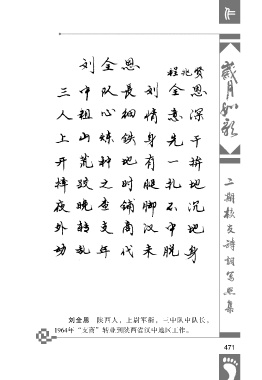 作
刘全恩
程兆贤
三中队长刘全恩
人粗心细情意深
上山炼铁身先干
开荒种地有一拚
摔跤之时腿扎地
夜晚查铺脚不沉
外转支商汉中地
动乱年代未脱身
刘全恩 陕西人，上尉军衔，三中队中队长。
1964年“支商”转业到陕西省汉中地区工作。
岁月如歌
二期校友诗词写照集
471